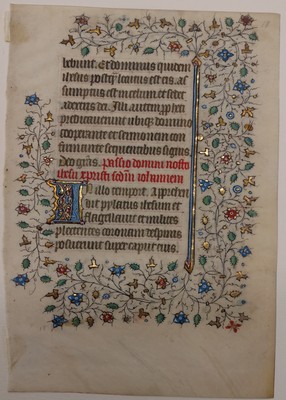 bebunt. Et dominus quidem
ihesus postq̃ locutus est eis. as
sumptus est in celum et sedet
a dextris dei. Illi autem profec
predicauerunt ubiq̃ domino
cooperante et sermonem con
firmante sequentibus signis
Deo gr̃as. Passio domini nostri
ihesu xpristi scdm iohannem
In illo tempore. Apprehen
dit pylatus ihesum et
flagellauit et milites
plectentes coronam de spinis
posuerunt super caput eius.